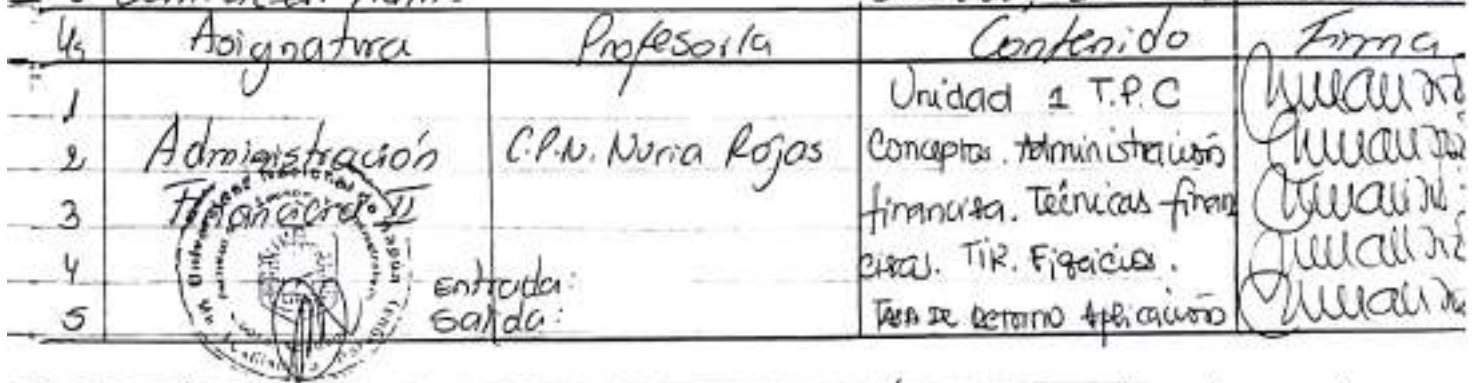 Asignatura Profesor/a Contenido Firma
1 Unidad 1 T.P.C
2 Administración C.P.N. Nuria Rojas Conceptos. Administración
3 Financiera II financiera. Técnicas finan
4 Entrada: cieras. TIR. Ejercicios.
5 Salida: TASA DE RETORNO Aplicación